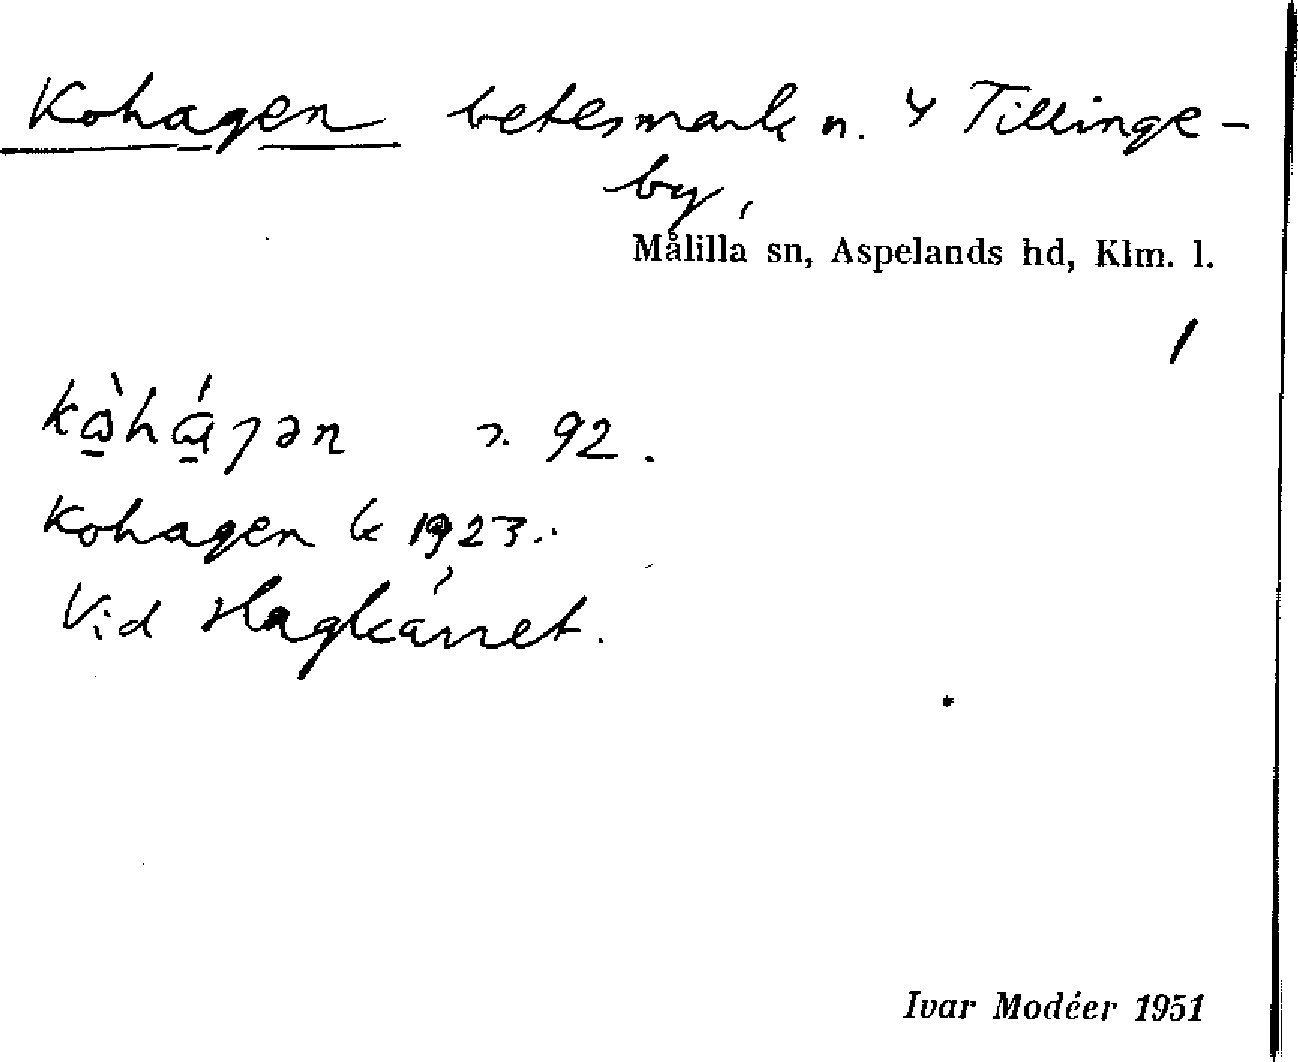 Kohagen betesmark n. 4 Tillinge-
by,
Målilla sn, Aspelands hd, Klm. l.
1
92.
Kohagen k 1923.
Vid Hagkärret.
Ivar Modéer 1951